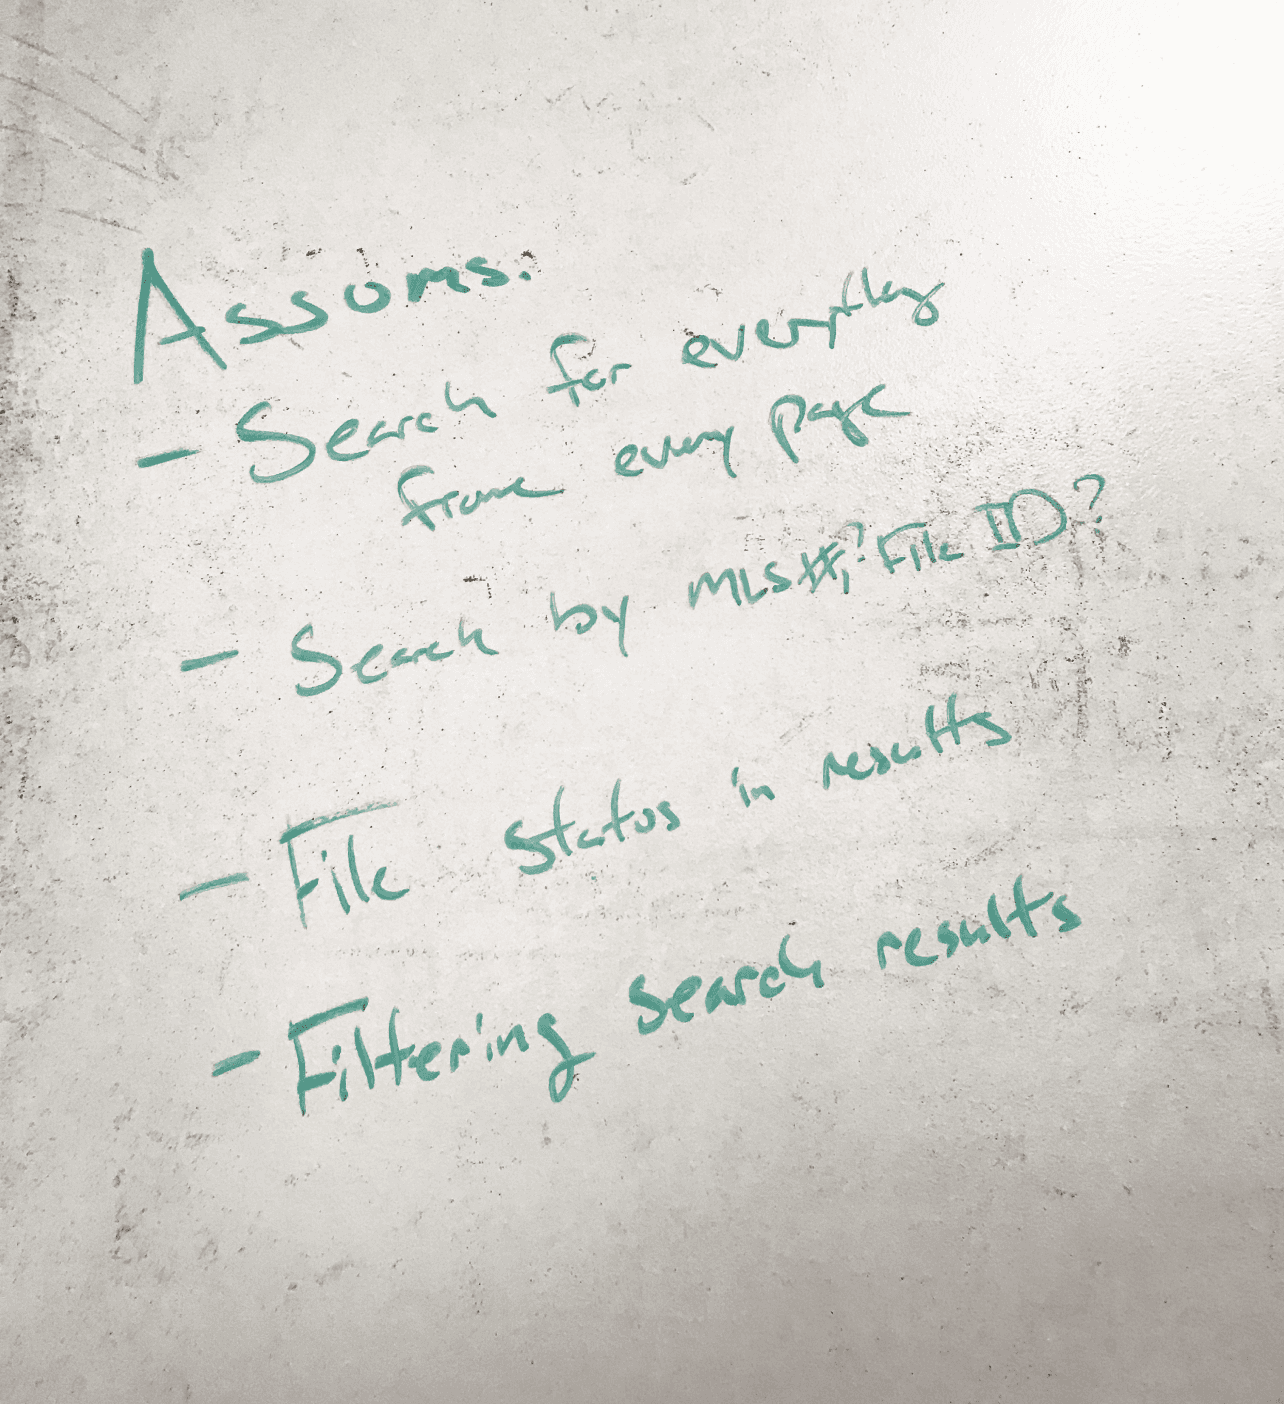 Assums.
- Search for everything
from every page
- Search by MLS#,? File ID?
- File status in results
- Filtering search results